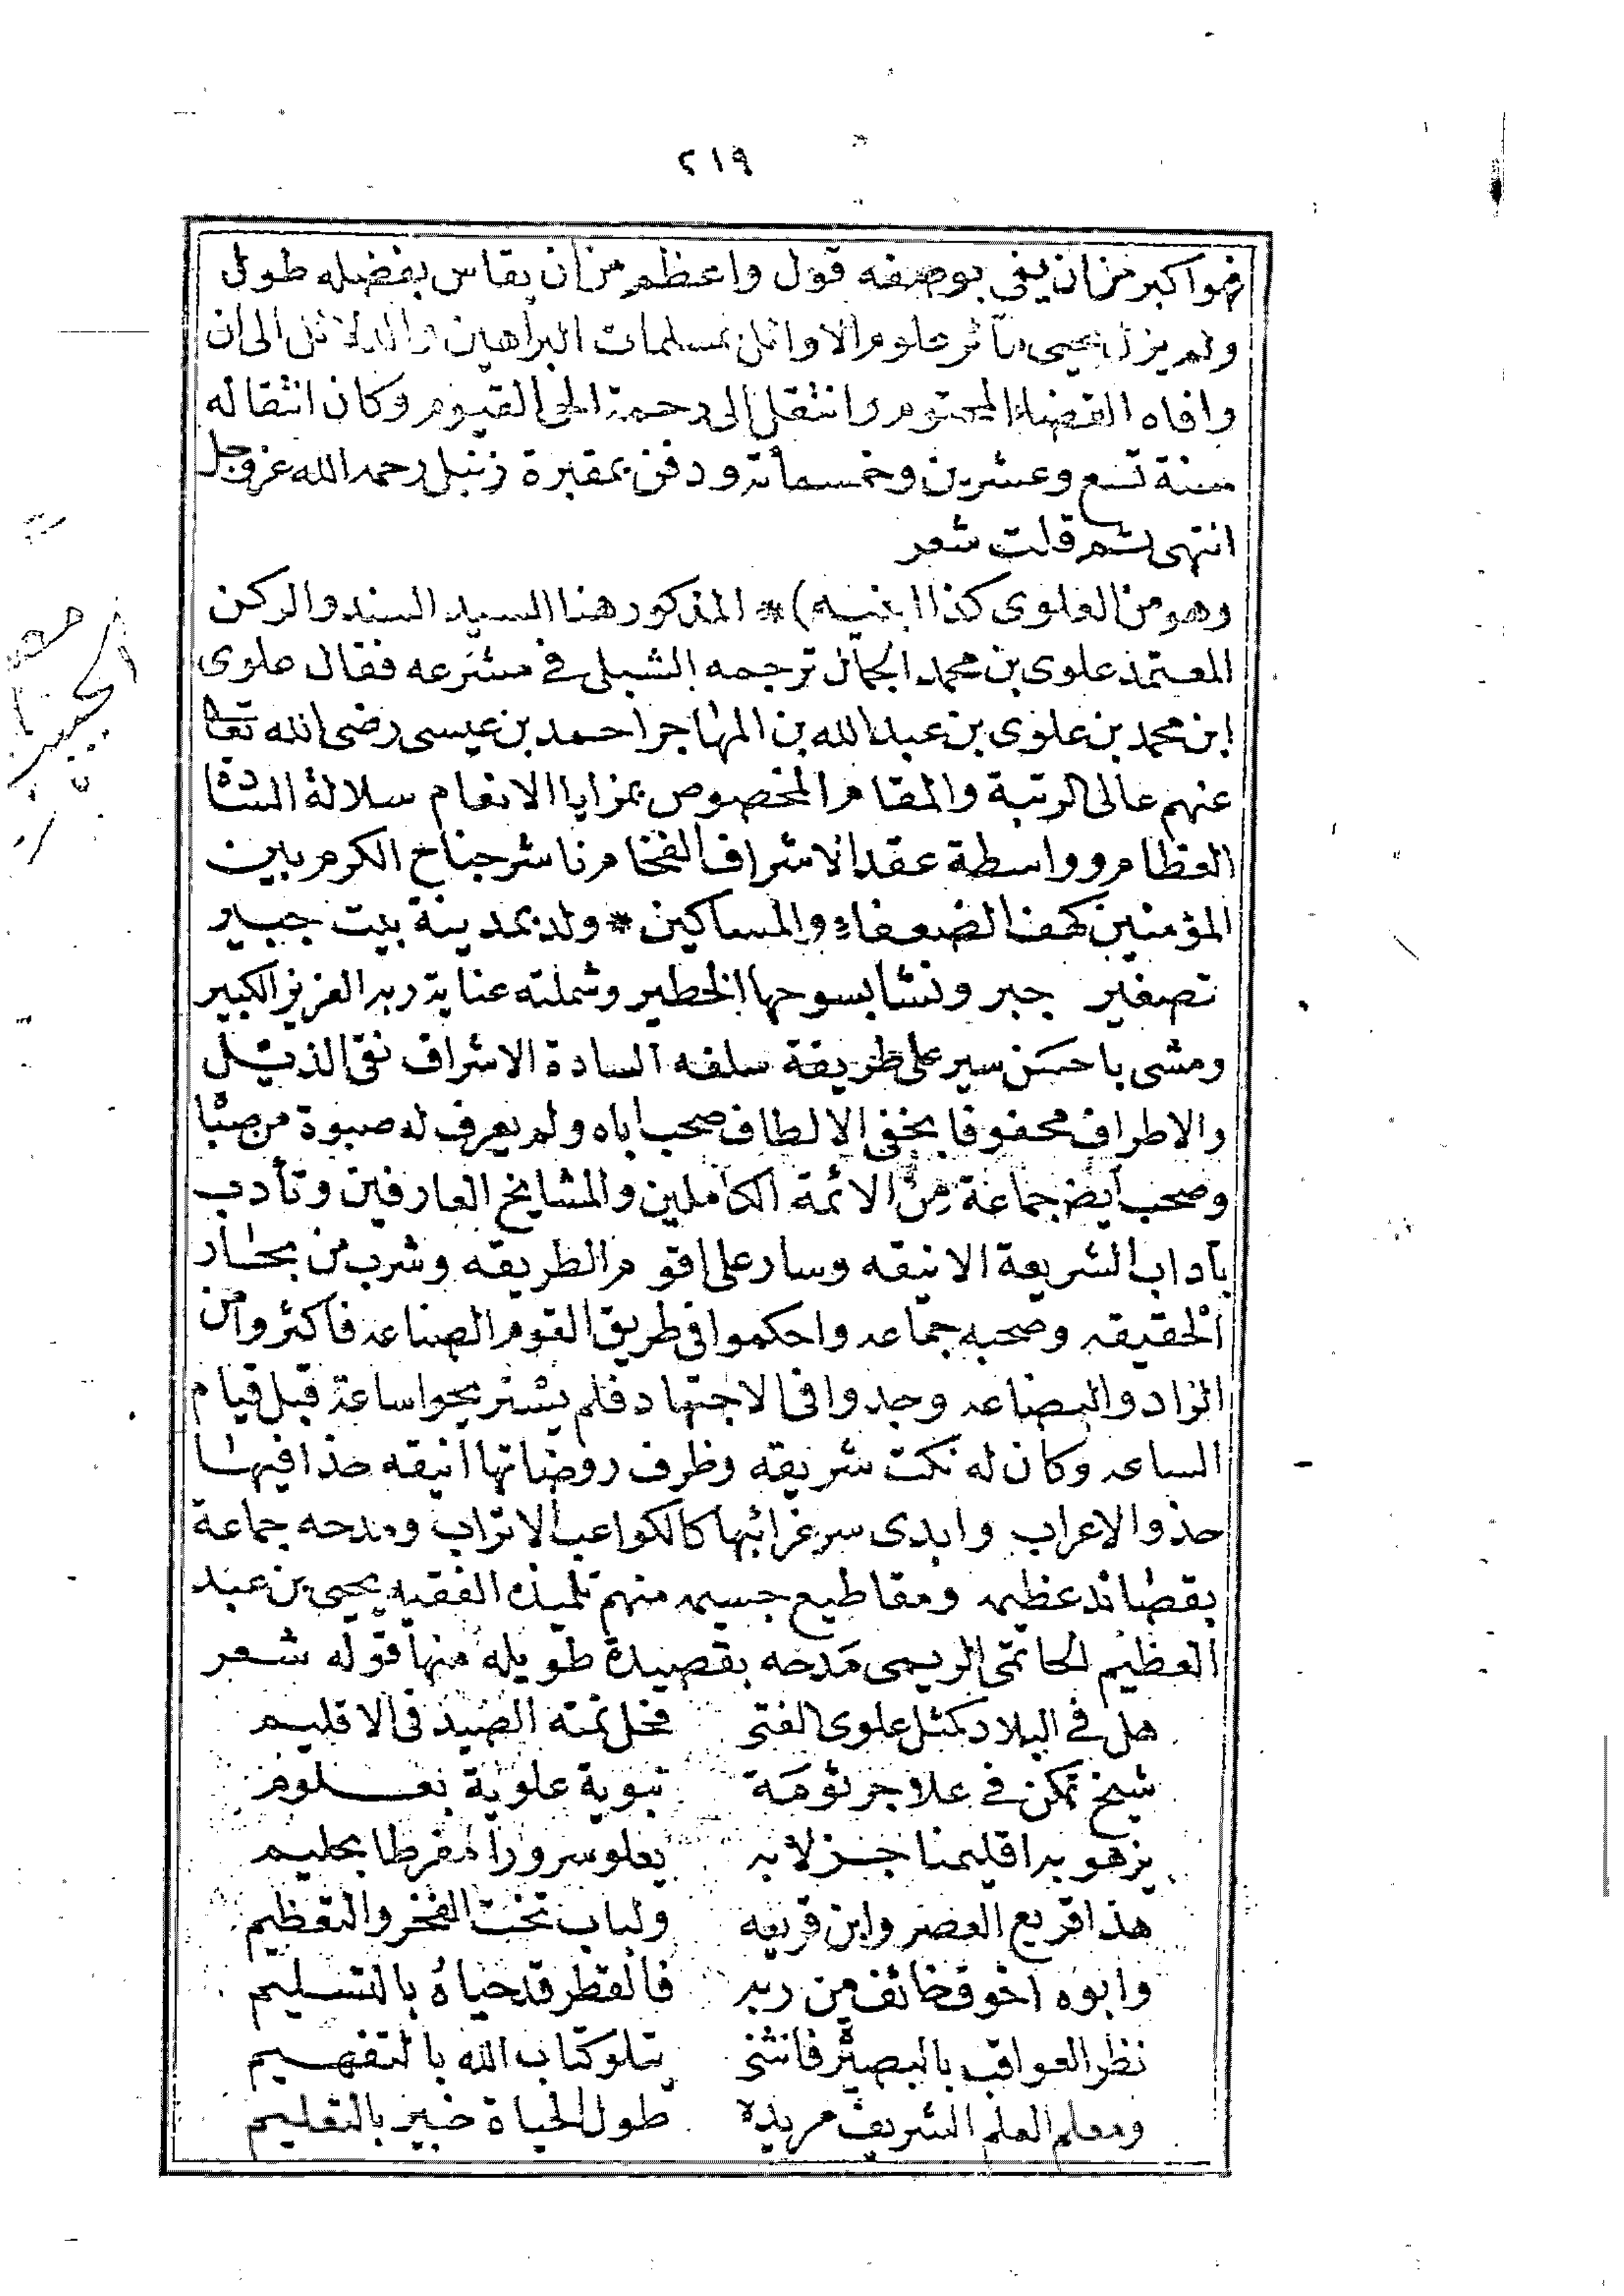 ٢١٩
فهو اكبر من ان يفي بوصفه قول واعظم من ان يقاس بفضله طول
ولم يزل يحيى مآثر علوم الاوائل بمسلمات البراهين والدلائل الى ان
وافاه القضاء المحتوم وانتقل الى رحمة الحي القيوم وكان انتقاله
سنة تسع وعشرين وخمسمائة ودفن بمقبرة زنبل رحمه الله عز وجل
انتهى ثم قلت شعر
وهو من العلوي كذا ابنيه) * المذكور هنا السيد السند والركن
المعتمد علوي بن محمد الجمال ترجمه الشبلي في مشرعه فقال علوي
ابن محمد بن علوي بن عبد الله بن المهاجر احمد بن عيسى رضى الله تعا
عنهم عالى الرتبة والمقام المخصوص بمزايا الانعام سلالة السادة
العظام وواسطة عقد الاشراف الفخام ناشر جناح الكرم بين
المؤمنين كهف الضعفاء والمساكين * ولد بمدينة بيت جبير
تصغير جبر ونشا بسوحها الخطير وشملته عناية ربه العزيز الكبير
ومشى باحسن سير على طريقة سلفه السادة الاشراف نقى الذيل
والاطراف محفوفا بخفى الالطاف صحب اباه ولم يعرف له صبوة من صبا
وصحب ايض جماعة من الائمة الكاملين والمشايخ العارفين وتأدب
بآداب الشريعة الانيقه وسار على اقوم الطريقه وشرب من بحار
الحقيقه وصحبه جماعه واحكموا في طريق القوم الصناعه فاكثروا من
الزاد والبضاعه وجدوا فى الاجتهاد فلم يستريحوا ساعة قبل قيام
الساعه وكان له نكت شريفه وظرف روضاتها انيقه حذا فيها
حذو الاعراب وابدى سر غرائبها كالكواعب الاتراب ومدحه جماعة
بقصائد عظيمه ومقاطيع جسيمه منهم تلميذه الفقيه يحيى بن عبد
العظيم الحاتمى الريمى مدحه بقصيدة طويله منها قوله شعر
هل في البلاد كمثل علوى الفتى فحل نمته الصيد فى الاقليم
شيخ تمكن في علا جرثومة نبوية علوية بعلوم
يزهو به اقليمنا جزلا به يعلو سرورا مفرطا بحليم
هذا قريع العصر وابن قريعه ولباب تخت الفخر والتعظيم
وابوه اخو من ربه فالقطر قد حياه بالتسليم
نظر العواقب فانثنى يتلو كتاب الله بالتفهيم
ومعلم العلم الشريف مريده طول الحياة خبير بالتعليم